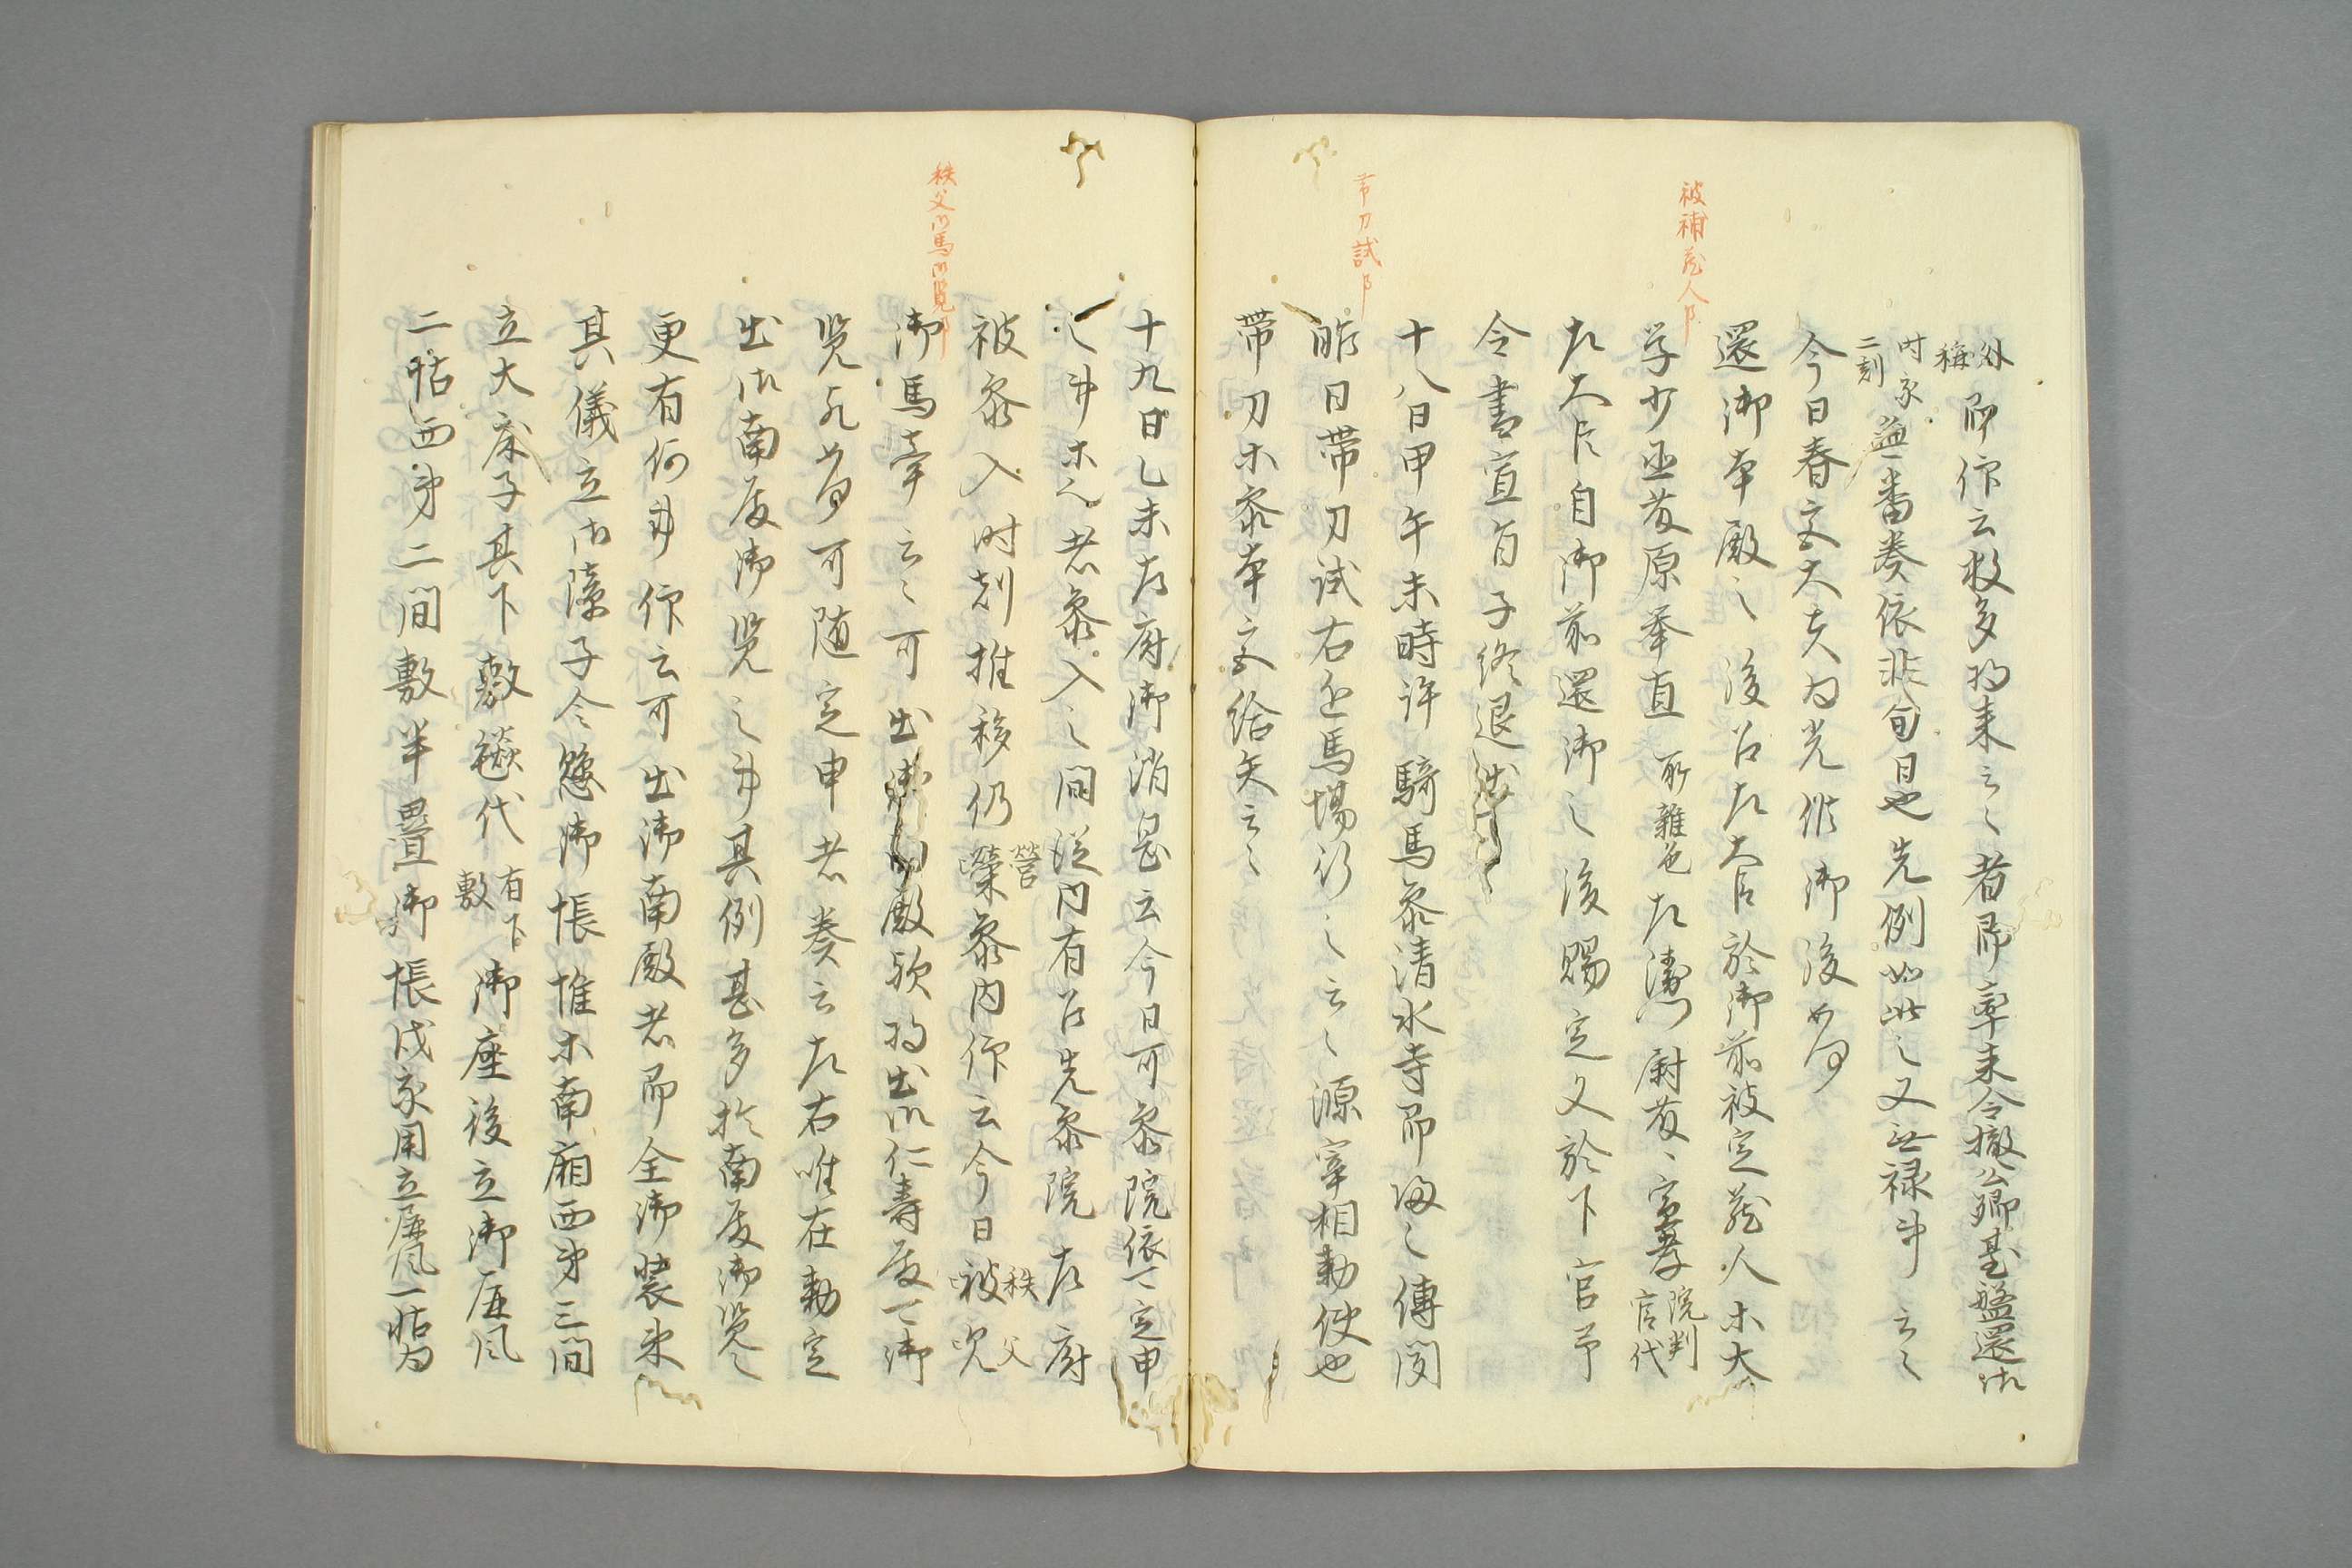 被補蔵人事
帯刀試事
外称 即仰云枚多將来云々者即率来令撤公卿臺盤還御
时亥二刻 無番奏依非旬日也先例如此之又無禄事云々
今日春宮大夫為光候御後如何
還御本殿之後召左大臣於御前被定蔵人等大
学少丞藤原挙直 所雑色 左衛門尉藤、宣孝 院判官代
左大臣自御前還御之後賜定文於下官予
令書宣旨子終退出
十八日甲午未時許騎馬參清水寺即帰之傳聞
昨日帯刀試右近馬場行之云々源宰相勅使也
帶刀等參本宮給矢云々
秩父御馬御覧事
十九日乙未左府御消息云今日可參院依可定申
之事等也者參入之間従内有召先參院左府
被參入時剋推移仍 参内仰云今日秩父
御馬牽云々可出御南殿欤將出御仁壽殿可御
覧先如何可随定申者奏云左右唯在勅定
出御南殿御覧之事其例甚多於南殿御覧
更有何事仰云可出御南殿者即令御装束
其儀立御障子令懸御帳帷等南廂西第三間
立大床子其下敷毯代 有下敷 御座後立御屏風
二帖西第二間敷半疊御帳戌亥角立屏風一帖為